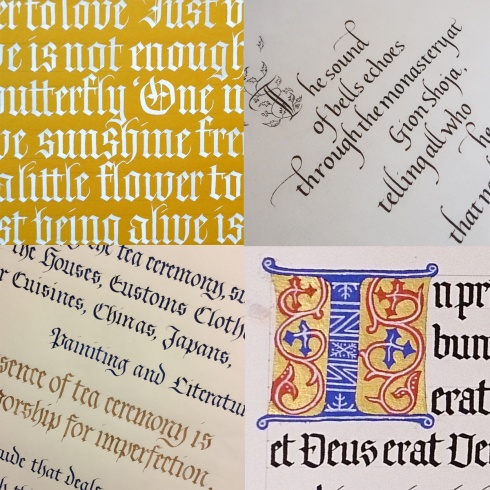 er to love 'Just
e is not enough
butterfly 'One
ve sunshine fre
a little flower to
st being alive is
The sound
of bells echoes
through the monastery at
Gion Shoja,
telling all who
he
that
the tea ceremony, su
the Houses, Customs Cloth
r Cuisines, Chinas, Japans,
Painting and Literatur
sence of tea ceremony is
orship for imperfection,
ude that deals
In pr
bun
erat
et Deus erat De